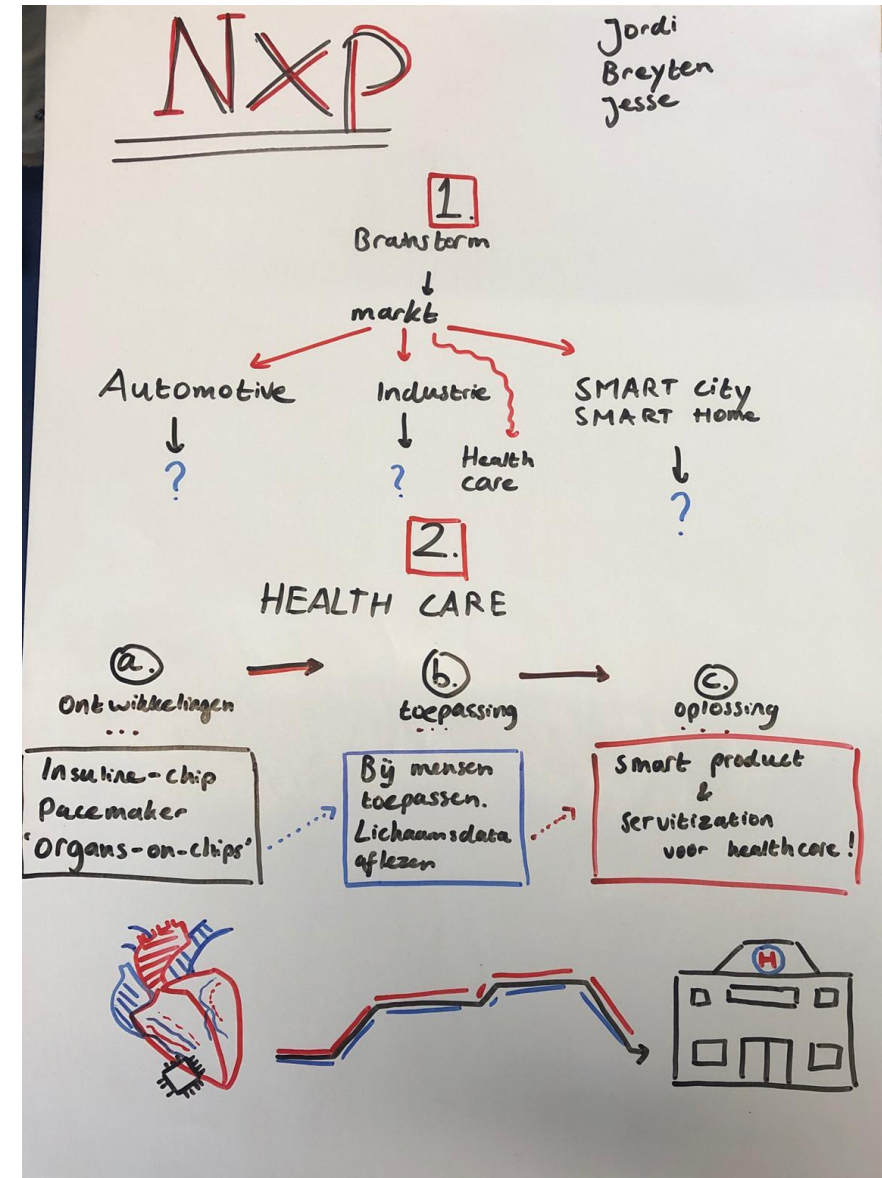 NXP
Jordi
Breyten
Jesse
1.
Brainstorm
markt
Automotive
Industrie
SMART City
SMART Home
?
?
Health
care
?
2.
HEALTH CARE
a.
b.
c.
Ontwikkelingen
toepassing
oplossing
...
...
...
Insuline-chip
Pacemaker
'Organs-on-chips'
Bij mensen
toepassen.
Lichaamsdata
aflezen
Smart product
&
Servitization
voor healthcare!
H